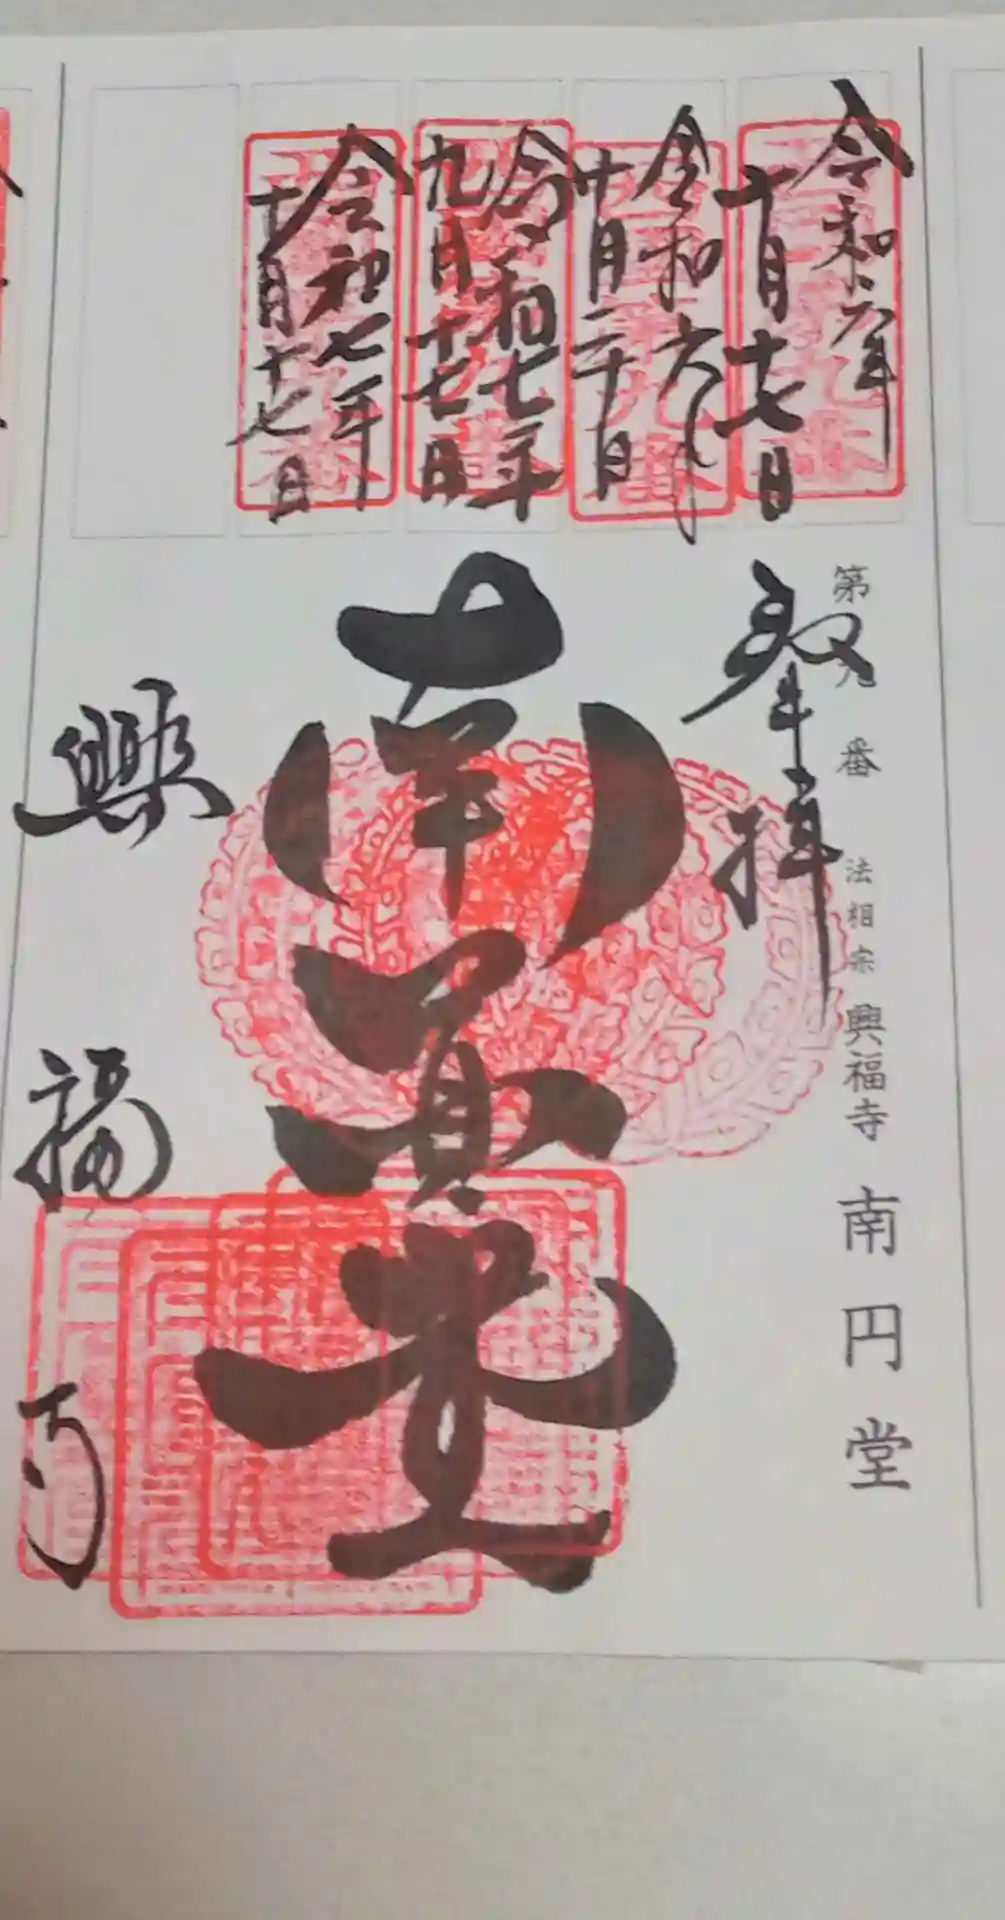 令和六年
十月十七日
令和六年
十月二十日
令和七年
九月十七日
令和七年
十月十七日
第九番 法相宗 興福寺 南円堂
奉拝
南圓堂
興福寺